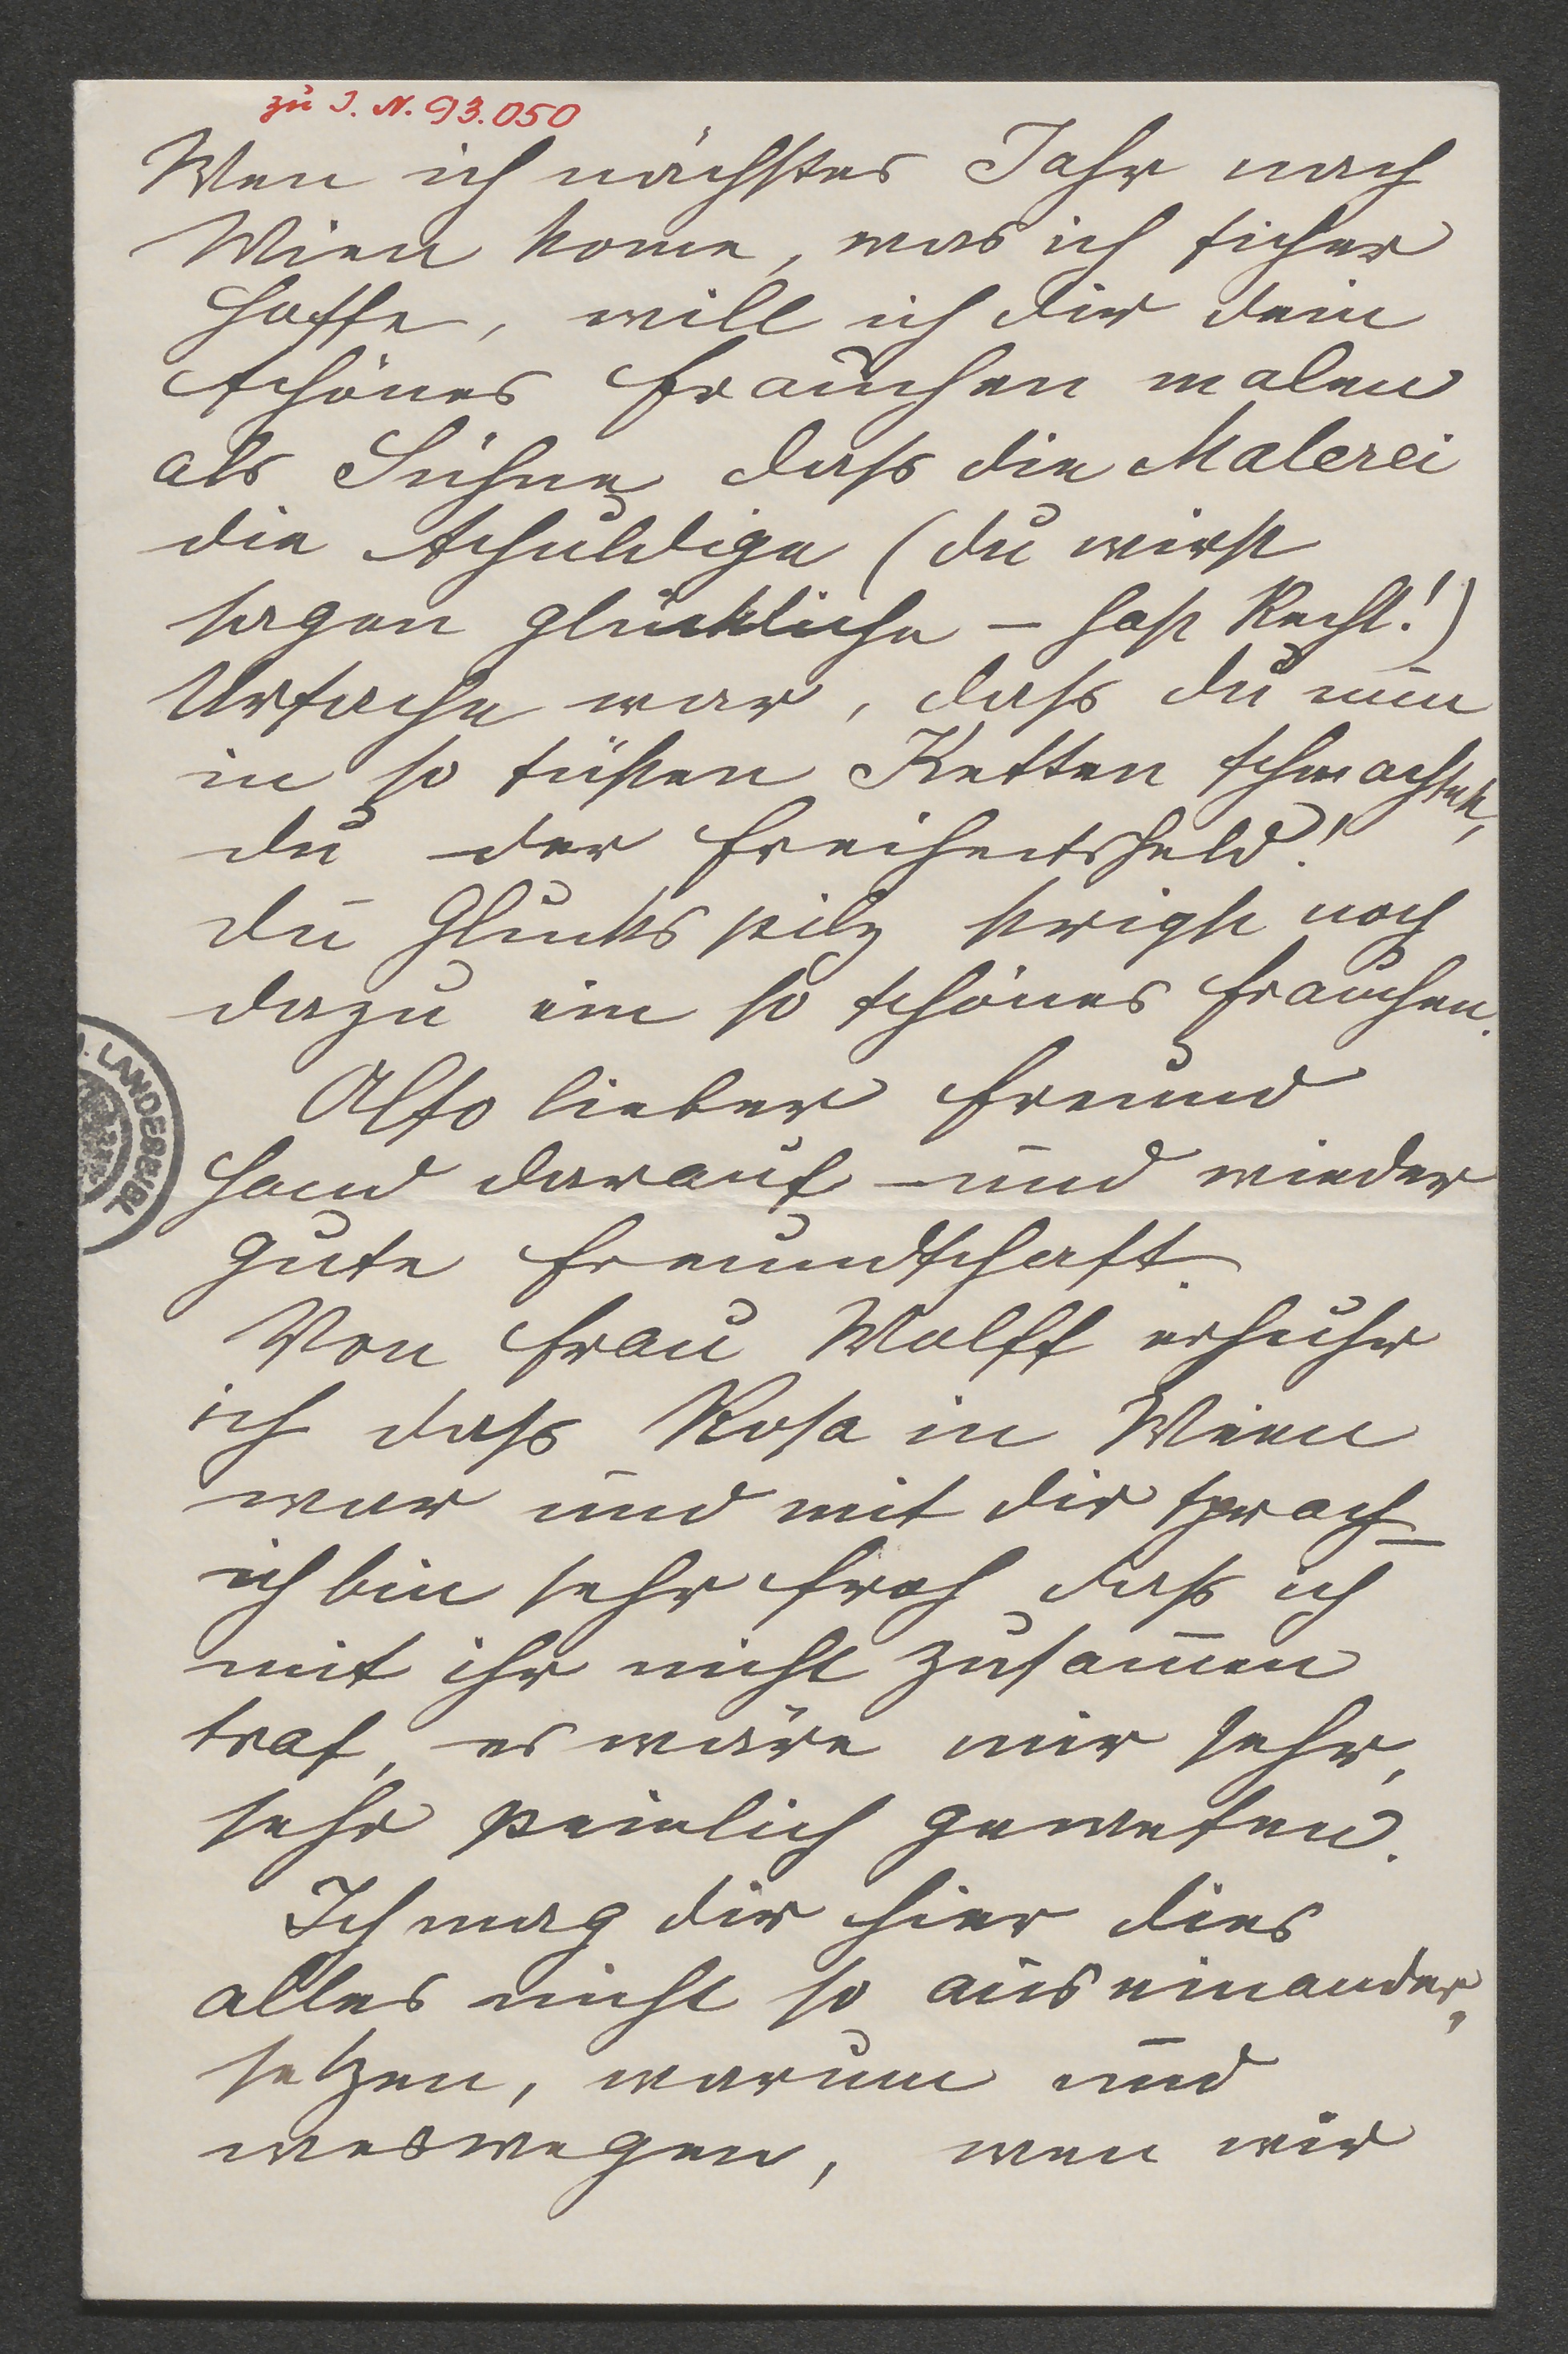 zu I. N. 93.050
Wen ich nächstes Jahr nach
Wien kome, was ich sicher
hoffe, will ich dir dein
schönes Frauchen malen
als Sühne, dass die Malerei
die schuldige (du wirst
sagen glückliche – hast Recht!)
Ursache war, dass du nun
in so süßen Ketten schmachtest,
du der Freiheitsheld!
Du Glückspilz krigst noch
dazu ein so schönes Frauchen.
Also lieber Freund
Hand darauf – und wieder
gute Freundschaft.
Von Frau Wolff erfuhr
ich dass Rosa in Wien
war und mit dir sprach –
ich bin sehr froh dass ich
mit ihr nicht zusam̅en
traf, es wäre mir sehr,
sehr peinlich gewesen.
Ich mag dir hier dies
alles nicht so auseinander„
setzen, warum und
weswegen, wen wir
LANDESBIBL